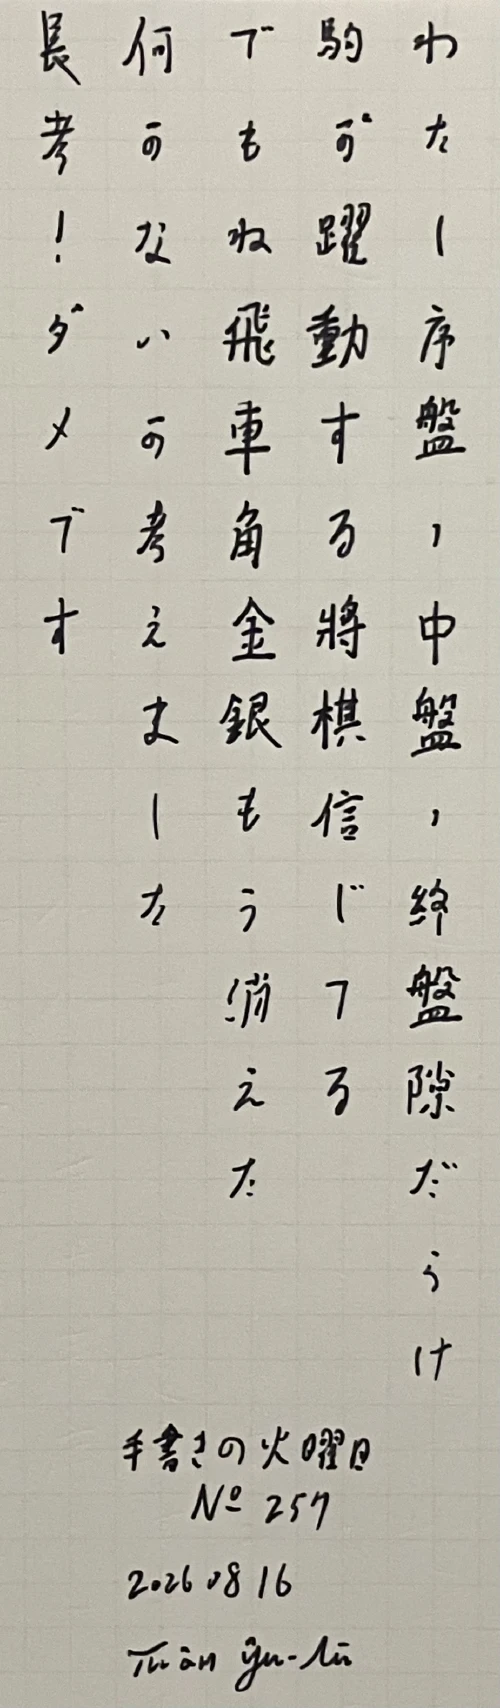 わたし序盤，中盤，終盤隙だらけ
駒が躍動する將棋信じてる
でもね飛車角金銀もう消えた
何かないか考えました
長考！ダメです
手書きの火曜日
Nº 257
2026 08 16